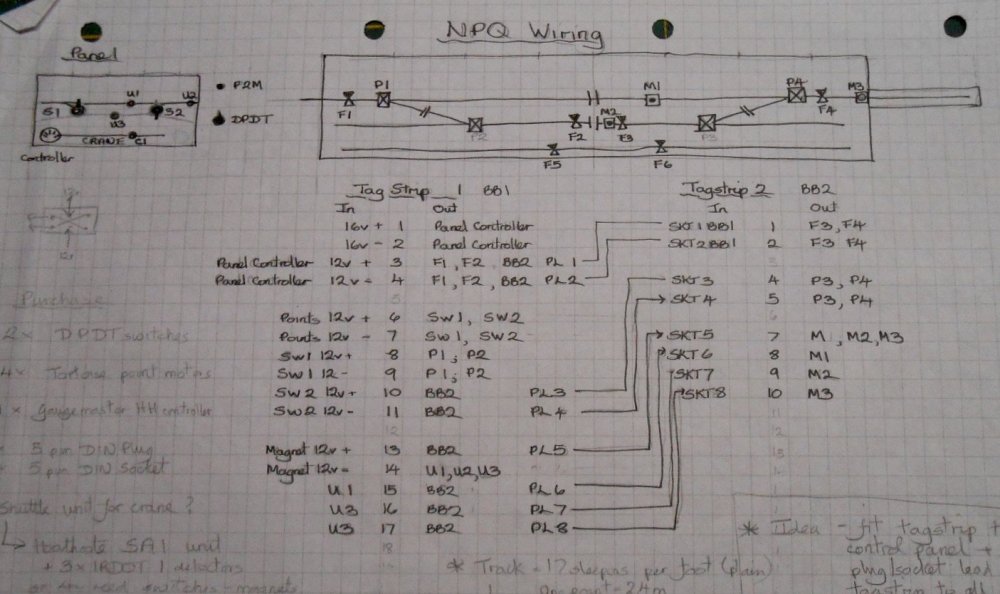 NPQ Wiring
Panel
U1 U2
S1 S2
U3
CRANE C1
Controller
P2M
DPDT
P1 M1 P4 M3
F1 F4
M2
P2 F2 F3 P3
F5 F6
Tag Strip 1 BB1
In Out
16v + 1 Panel Controller
16v - 2 Panel Controller
Panel Controller 12v + 3 F1, F2, BB2 PL 1
Panel Controller 12v - 4 F1, F2, BB2 PL2
5
Points 12v + 6 SW1, SW2
Points 12v - 7 SW1, SW2
SW1 12v+ 8 P1, P2
SW1 12- 9 P1, P2
SW2 12v+ 10 BB2 PL3
SW2 12v- 11 BB2 PL4
12
Magnet 12v + 13 BB2 PL5
Magnet 12v- 14 U1, U2, U3
U1 15 BB2 PL6
U3 16 BB2 PL7
U3 17 BB2 PL8
18
Tagstrip 2 BB2
In Out
SKT1BB1 1 F3, F4
SKT2BB1 2 F3 F4
3
SKT3 4 P3, P4
SKT4 5 P3, P4
6
SKT5 7 M1, M2, M3
SKT6 8 M1
SKT7 9 M2
SKT8 10 M3
11
12
13
Purchase
2x DPDT switches
4x Tortoise point motors
1 x Gaugemaster HH controller
5 pin DIN Plug
5 pin DIN Socket
Shuttle unit for crane?
Heathcote SA1 unit
+ 3 x IRDOT 1 detectors
switches - magnets
* Track = 17 sleepers per foot (plain)
One point = 24m
* Idea - fit tagstrip
control panel +
plug/socket lead
tagstrip to